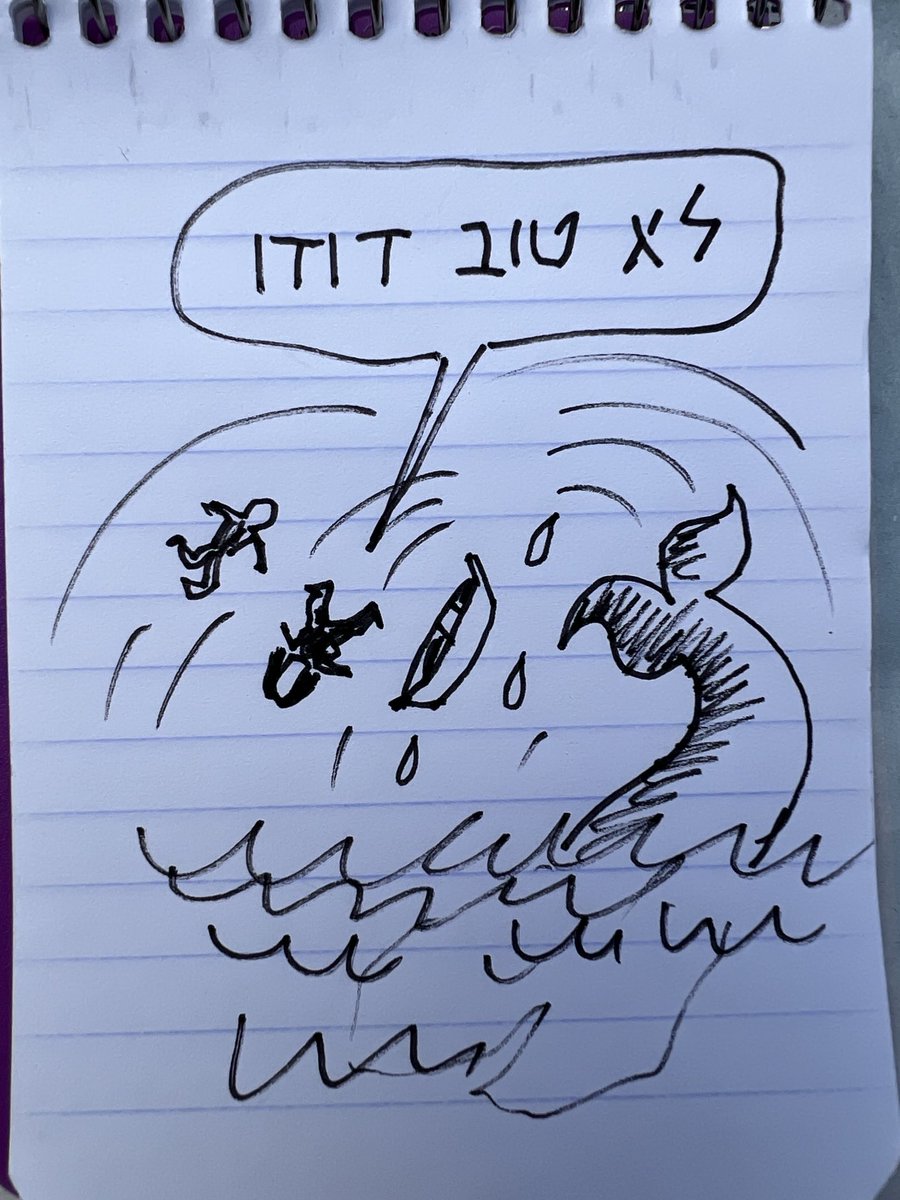 לא טוב דודו